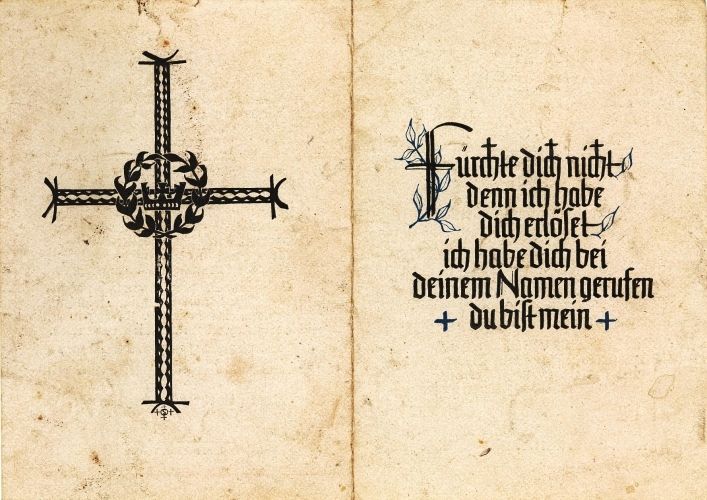 Fürchte dich nicht
denn ich habe
dich erlöset
ich habe dich bei
deinem Namen gerufen
du bist mein